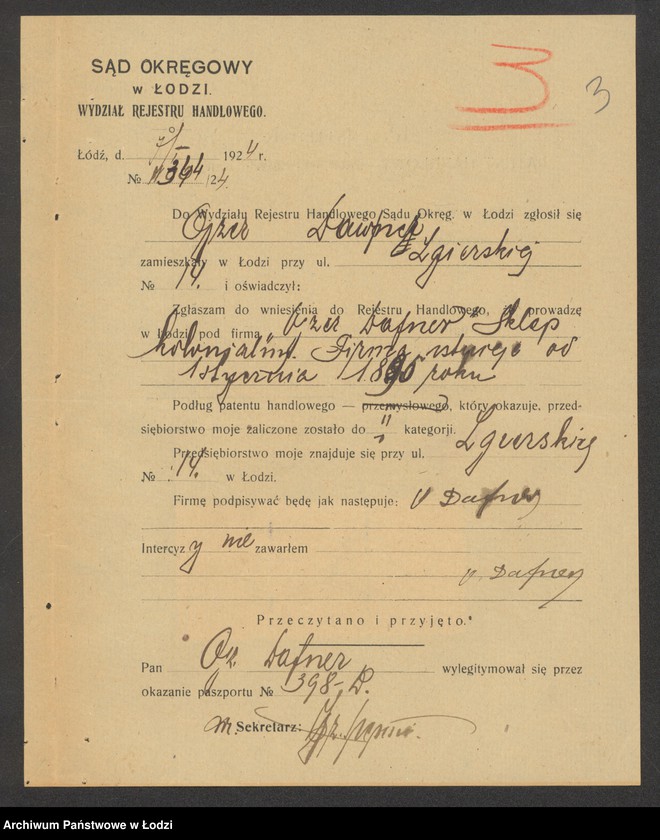 3
SĄD OKRĘGOWY
w ŁODZI.
WYDZIAŁ REJESTRU HANDLOWEGO.
Łódź, d. 1924 r.
№ /24.
Do Wydziału Rejestru Handlowego Sądu Okręg. w Łodzi zgłosił się
Ojzer
zamieszkały w Łodzi przy ul. Zgierskiej
№ 14. i oświadczył:
Zgłaszam do wniesienia do Rejestru Handlowego, że prowadzę
w Łodzi pod firmą „Ojzer Dafner” Sklep
kolonjalny. Firma istnieje od
1 stycznia 1890 roku
Podług patentu handlowego — przemysłowego, który okazuje, przed-
siębiorstwo moje zaliczone zostało do II kategorji.
Przedsiębiorstwo moje znajduje się przy ul. Zgierskiej
№ 14. w Łodzi.
Firmę podpisywać będę jak następuje: Dafner
Intercyzy nie zawarłem
Dafner
Przeczytano i przyjęto.
Pan Dafner wylegitymował się przez
okazanie paszportu № 398-D.
Sekretarz:
Archiwum Państwowe w Łodzi